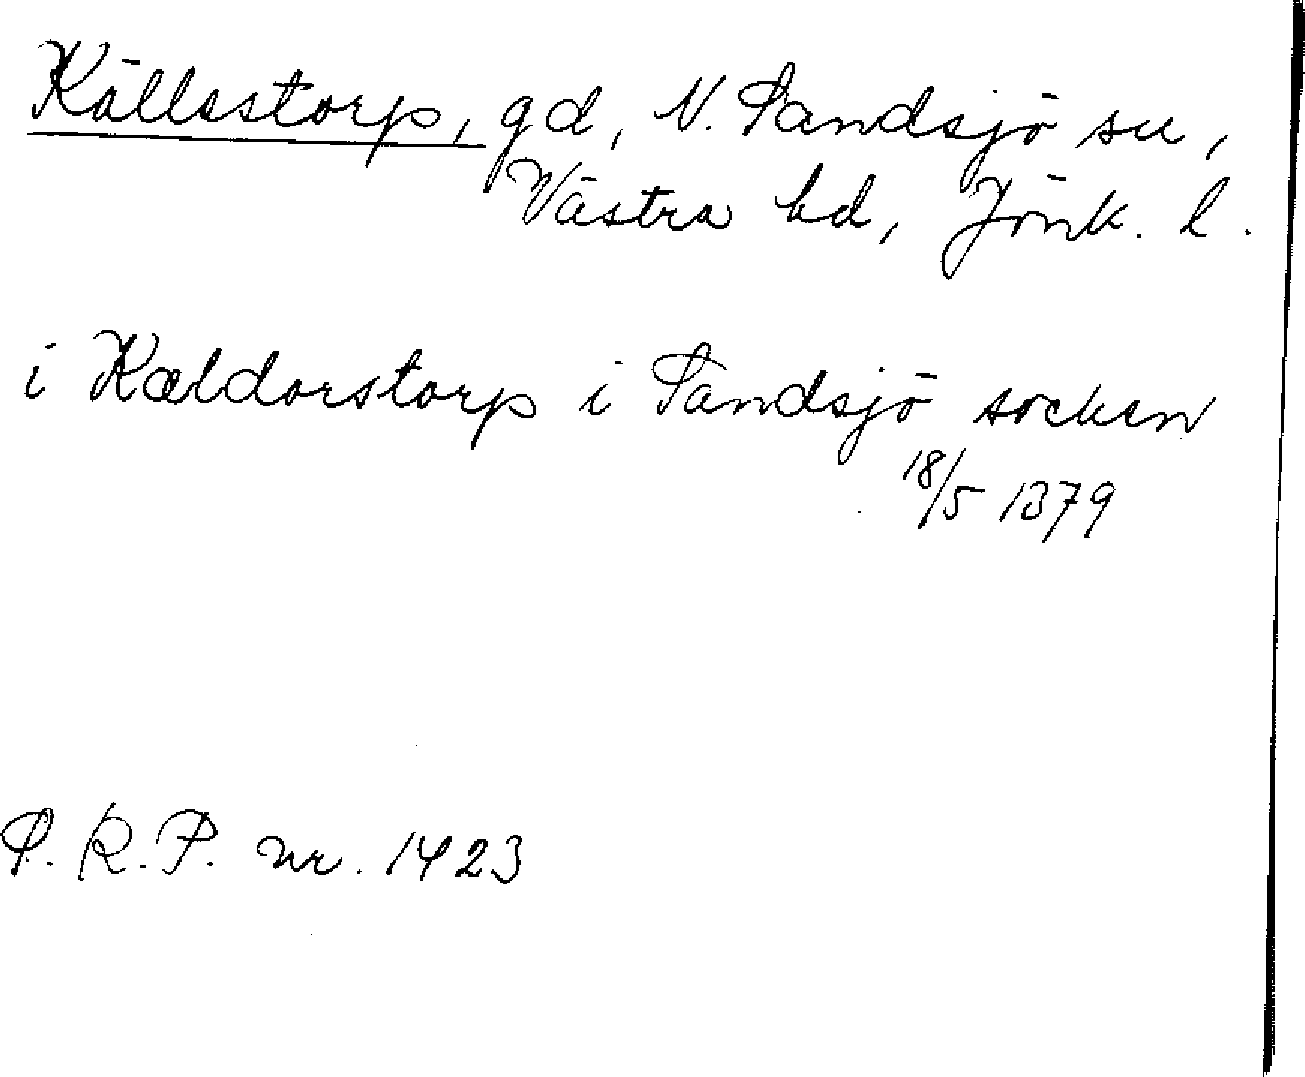 Källsstorp, gd, N. Sandsjö sn,
Västra hd, Jönk. l.
i Kældorstorp i Sandsjö socken
18/5 1379
S. R. P. nr. 1423